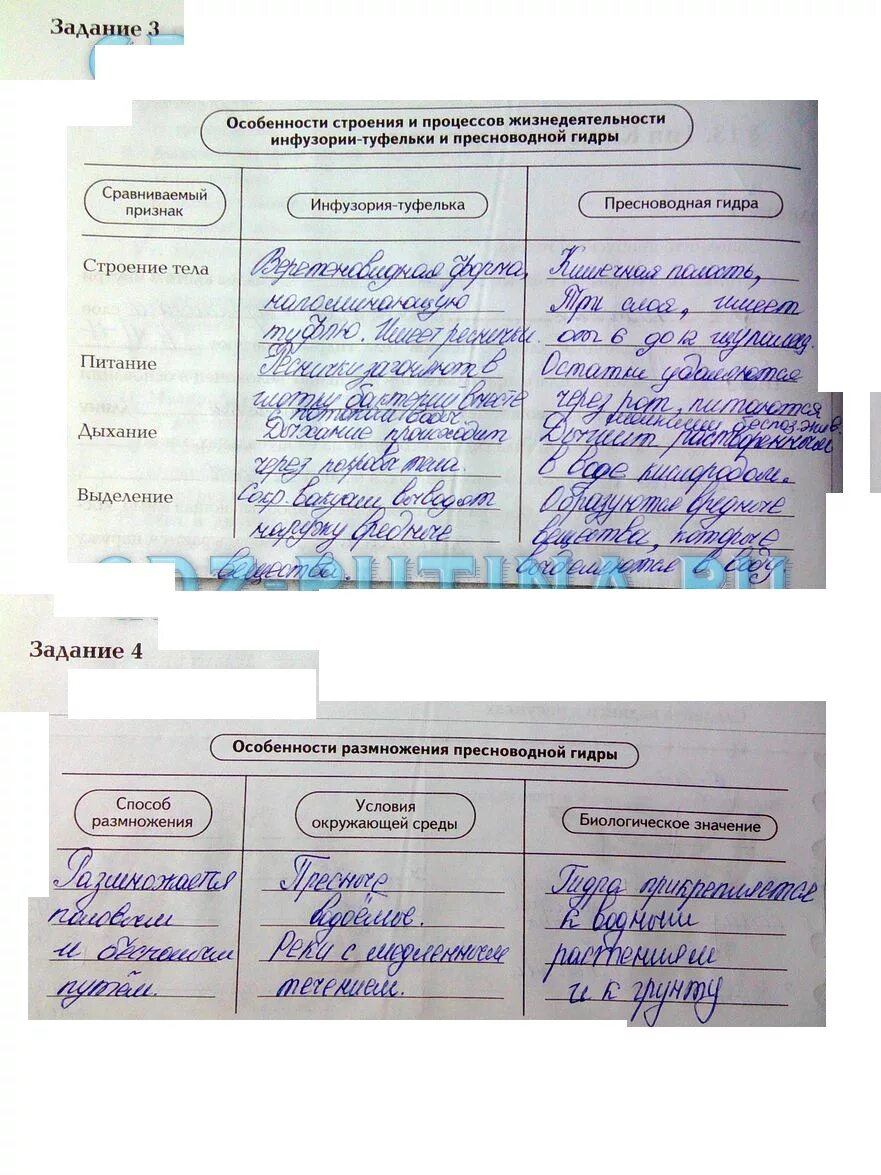 Задание 3
Особенности строения и процессов жизнедеятельности
инфузории-туфельки и пресноводной гидры
Сравниваемый признак
Инфузория-туфелька
Пресноводная гидра
Строение тела
Веретеновидная форма,
напоминающую
туфлю. Имеет реснички.
Кишечная полость,
Три слоя, имеет
от 6 до 12 щупалец.
Питание
Реснички загоняют в
глотку бактерии вместе
с потоками воды
Остатки удаляются
через рот, питаются
беспозвнв.
Дыхание
Дыхание происходит
через покровы тела.
Дышит растворенным
в воде кислородом.
Выделение
Сокр. вакуоли выводят
наружу вредные
вещества.
Образуются вредные
вещества, которые
выделяются в воду.
GDZ-PUTINA.RU
Задание 4
Особенности размножения пресноводной гидры
Способ размножения
Условия окружающей среды
Биологическое значение
Размножается
половым
и бесполым
путём.
Пресные
водоёмы.
Реки с медленным
течением.
Гидра прикрепляется
к водным
растениям
и к грунту